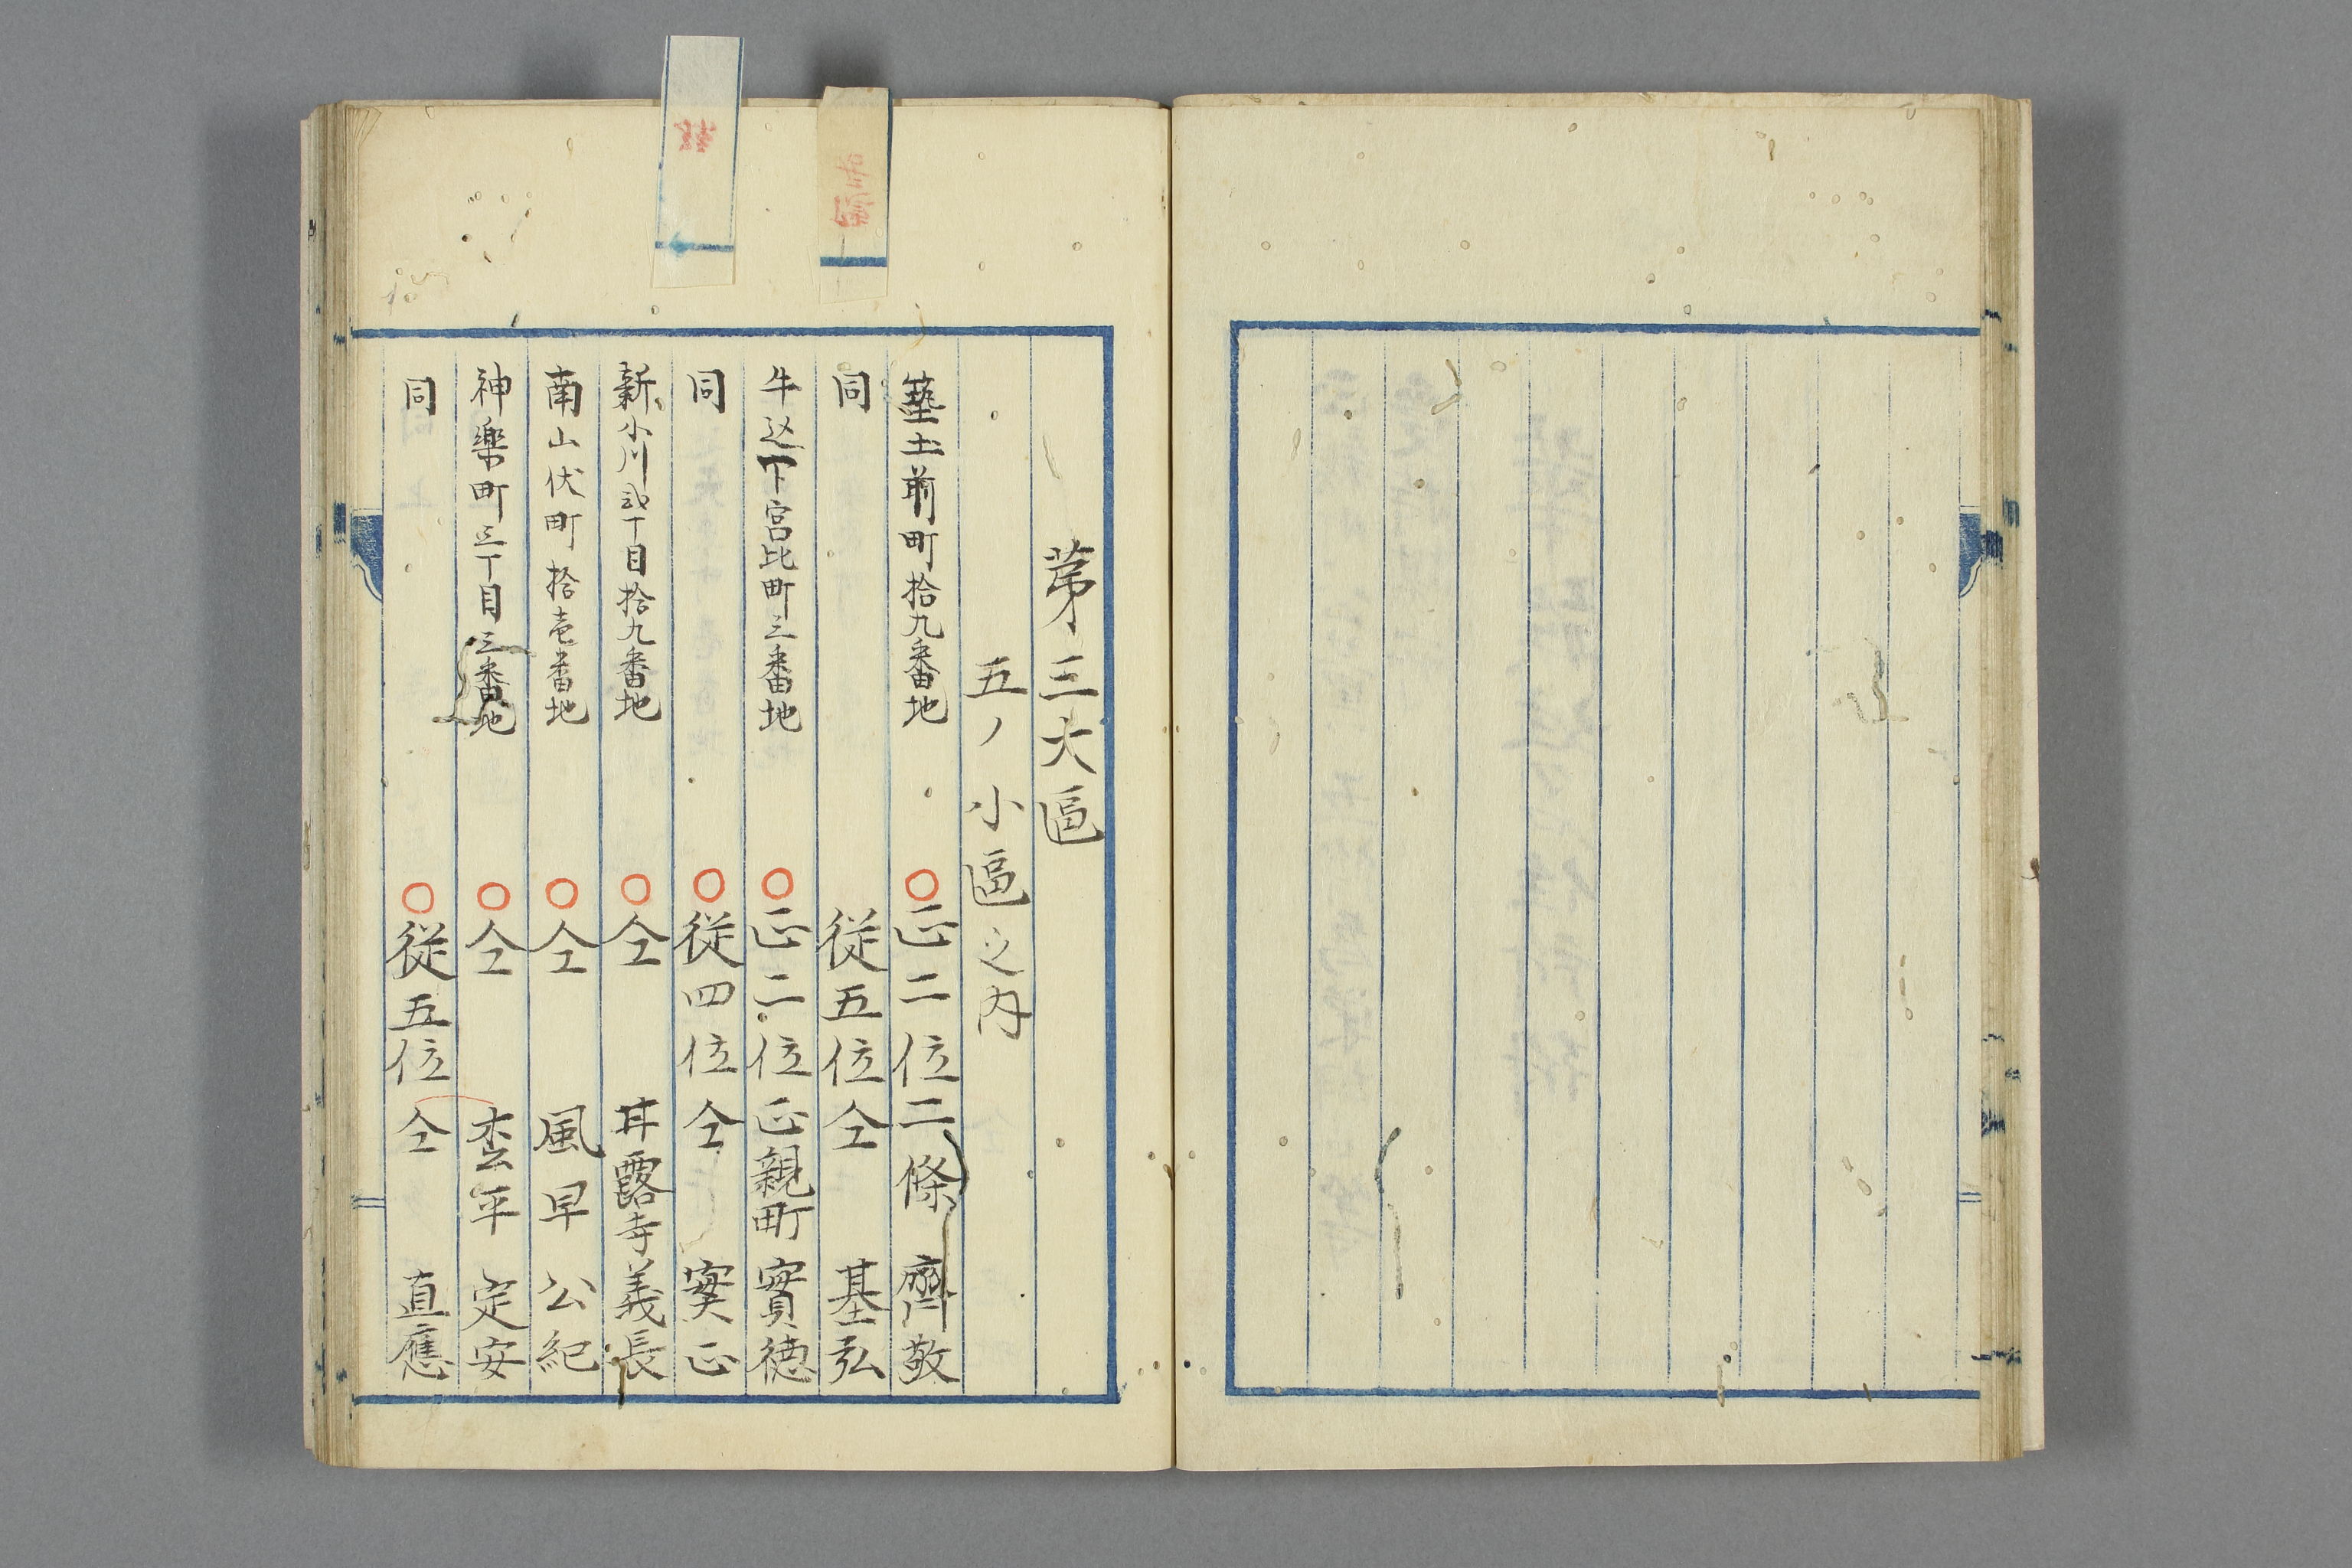 第三大區
五ノ小區之内
築土前町拾九番地 ○正二位二條 齊敬
同 従五位仝 基弘
牛込下宮比町三番地 ○正二位正親町 實徳
同 ○従四位仝 実正
新小川弐丁目拾九番地 ○仝 甘露寺義長
南山伏町拾壱番地 ○仝 風早 公紀
神樂町三丁目三番地 ○仝 杢平 定安
同 ○従五位仝 直應